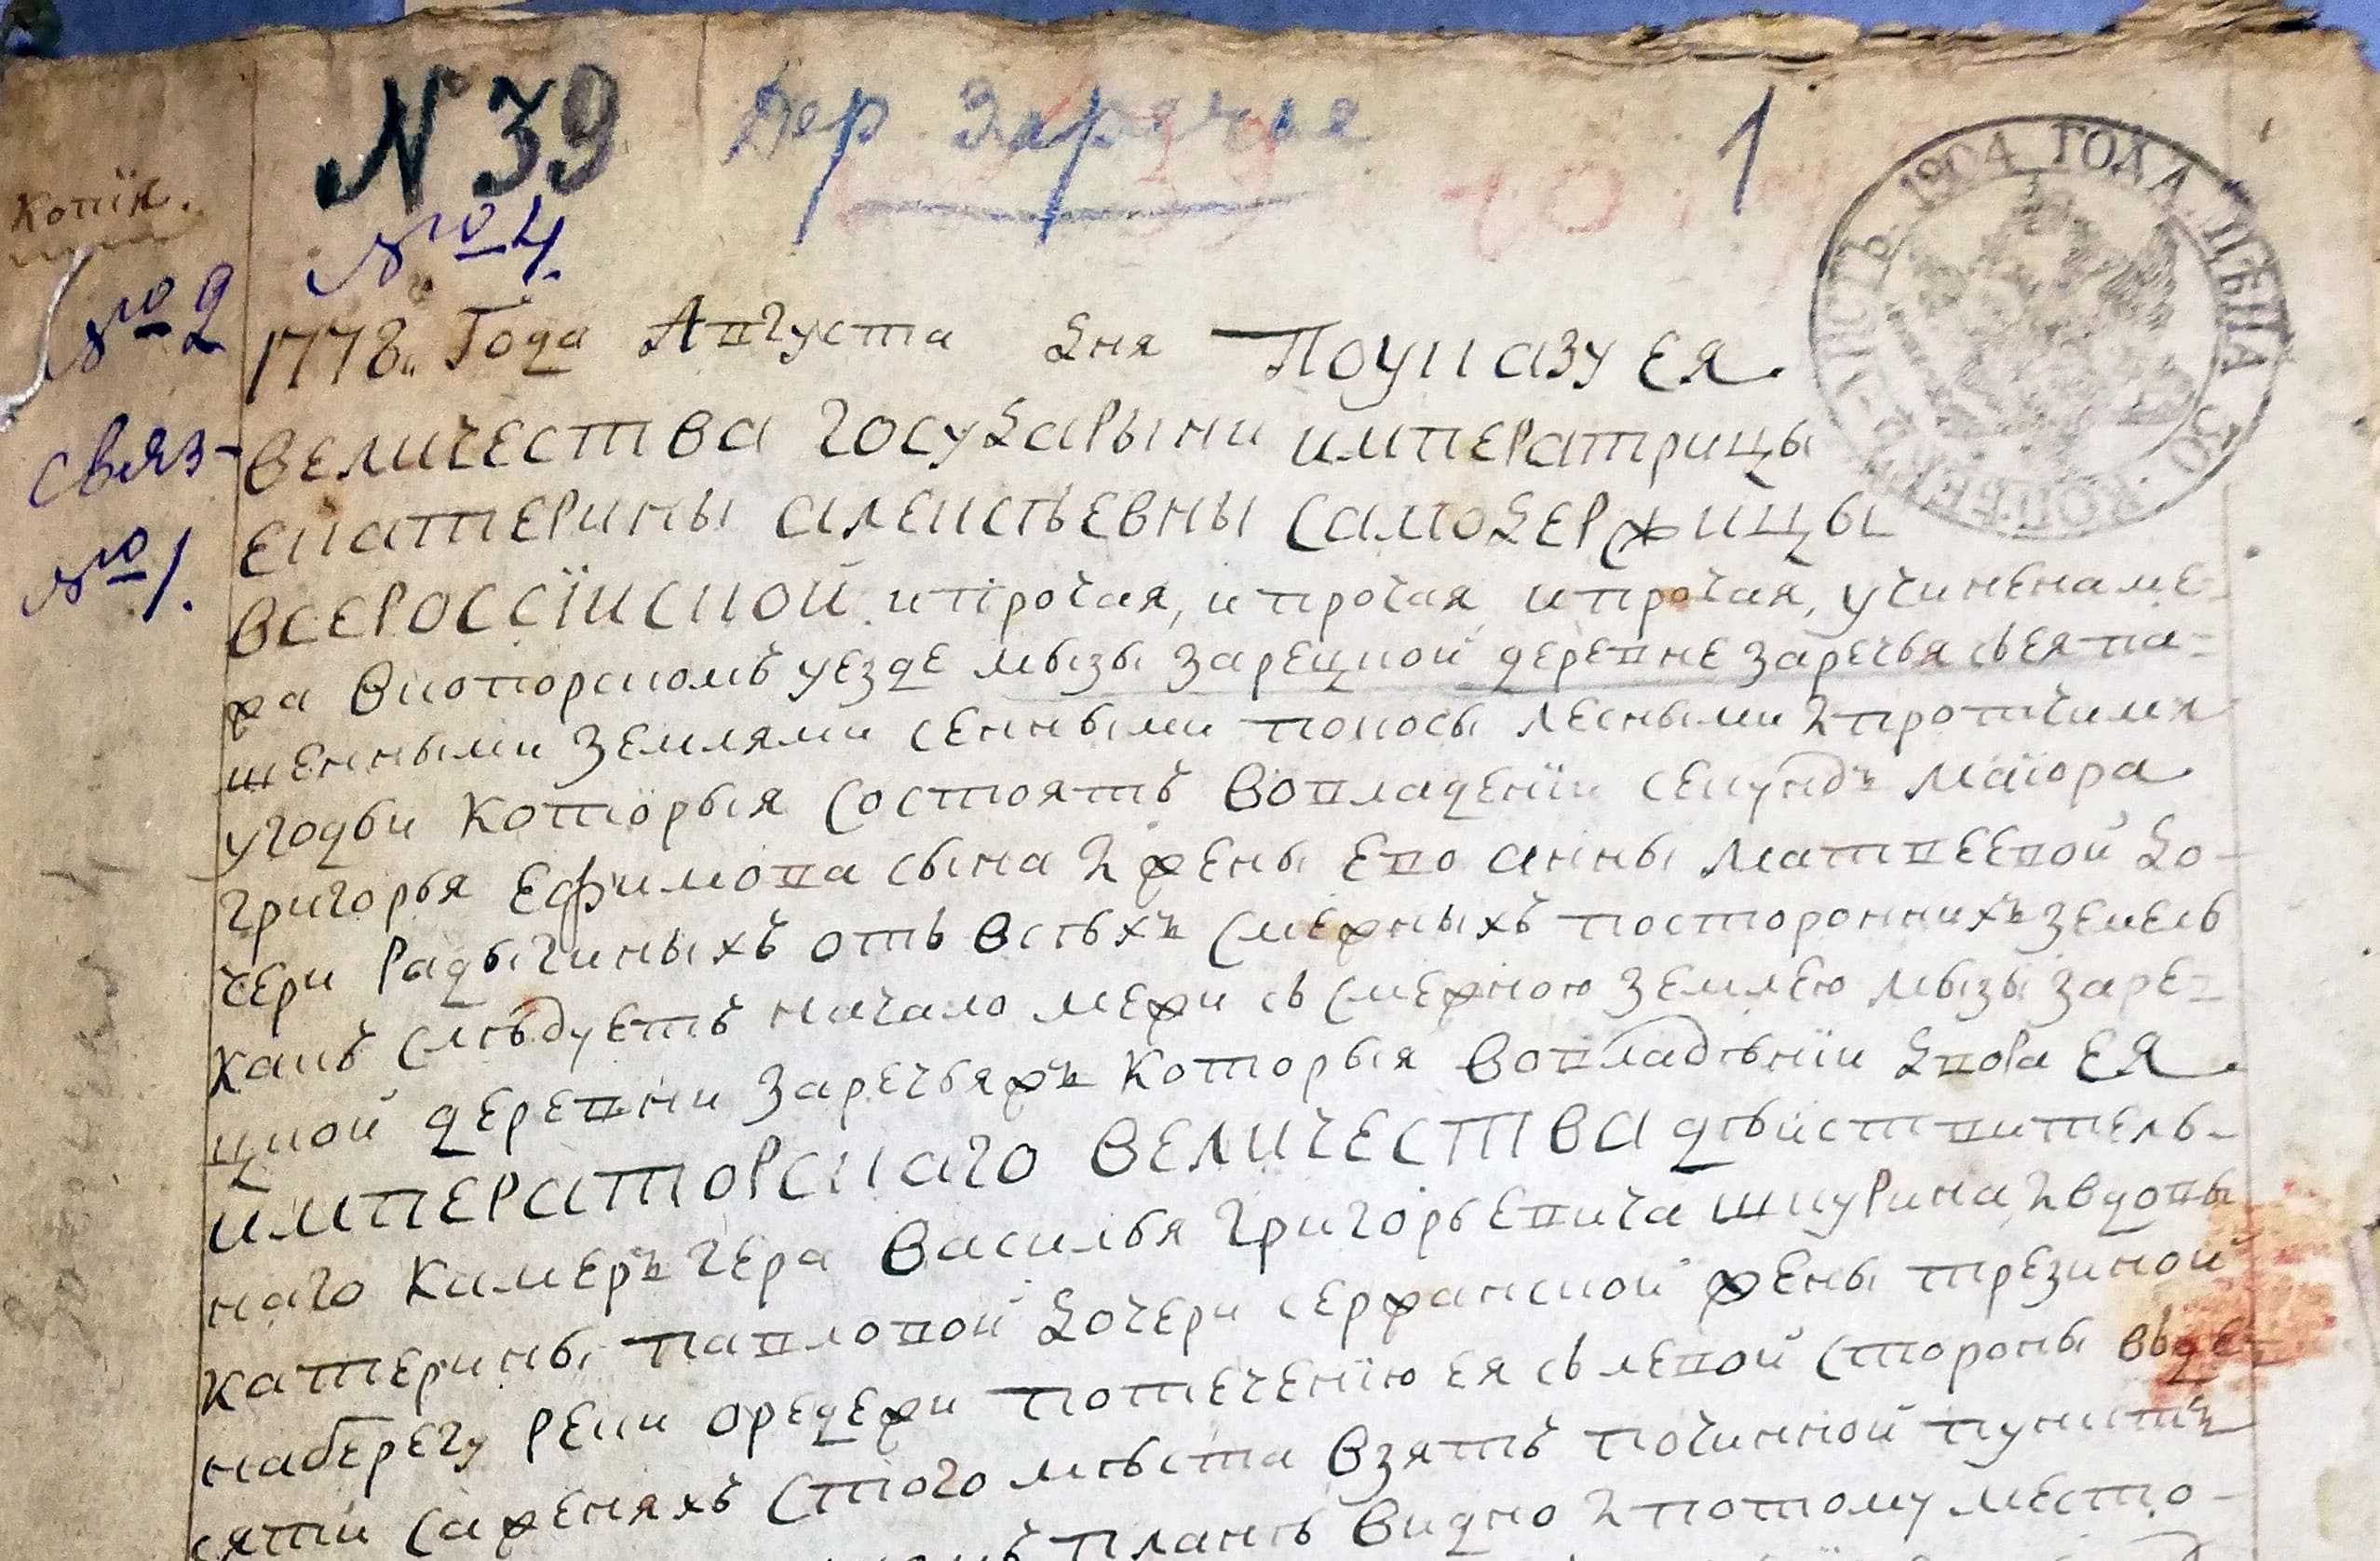 N 39
Дер. Заречье
1
№ 4.
Копiя.
№ 2
Связ-
№ 1.
1904 ГОДА ЦѢНА 50 КОПѢЕКЪ
1778. Года Августа дня Поуказу ЕЯ
ВЕЛИЧЕСТВА ГОСУДАРЫНИ ИМПЕРАТРИЦЫ
ЕКАТЕРИНЫ АЛЕКСѢЕВНЫ САМОДЕРЖИЦЫ
ВСЕРОССIЙСКОЙ ипрочая, ипрочая ипрочая, учиненаме-
жа вкопорскомъ уезде мызы зарецкой деревне заречья сѣя па-
шенными землями сенными покосы лесными ипротчими
угодьи которыя состоятъ вовладенiи секундъ маiора
григорья ефимова сына ижены ево анны матвеевой до-
чери радыгиныхъ отъ всѣхъ смежныхъ постороннихъ земель
какъ слѣдуетъ начало межи съ смежною землею мызы заре-
цкой деревни заречьяжъ которыя вовладѣнiи двора ЕЯ
ИМПЕРАТОРСКАГО ВЕЛИЧЕСТВА дѣйствитель-
наго камеръ гера василья григорьевича шкурина, ивдовы
катерины павловой дочери сержанской жены трезиной
наберегу реки оредежи потечению ея съ левой стороны въде-
сяти саженяхъ стого мѣста взятъ починной пунктъ
планъ видно ипотому место-